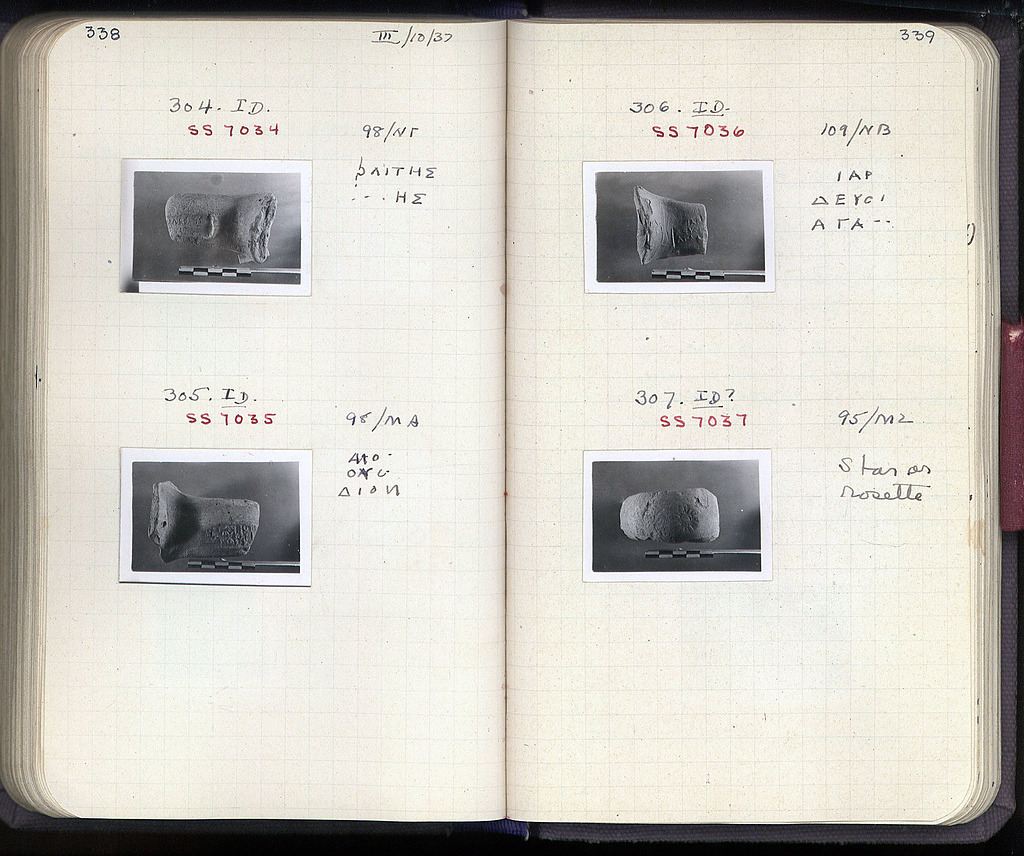 338
III/10/37
304. ID.
SS 7034
98/ΝΓ
ΛΙΤΗΣ
...ΗΣ
305. ID.
SS 7035
98/ΜΑ
ΔΙΟΝ
339
306. ID.
SS 7036
109/ΝΒ
ΙΑΡ
ΔΕΥCΙ
ΑΓΑ--
307. ID?
SS 7037
95/ΜΖ
Star or
rosette